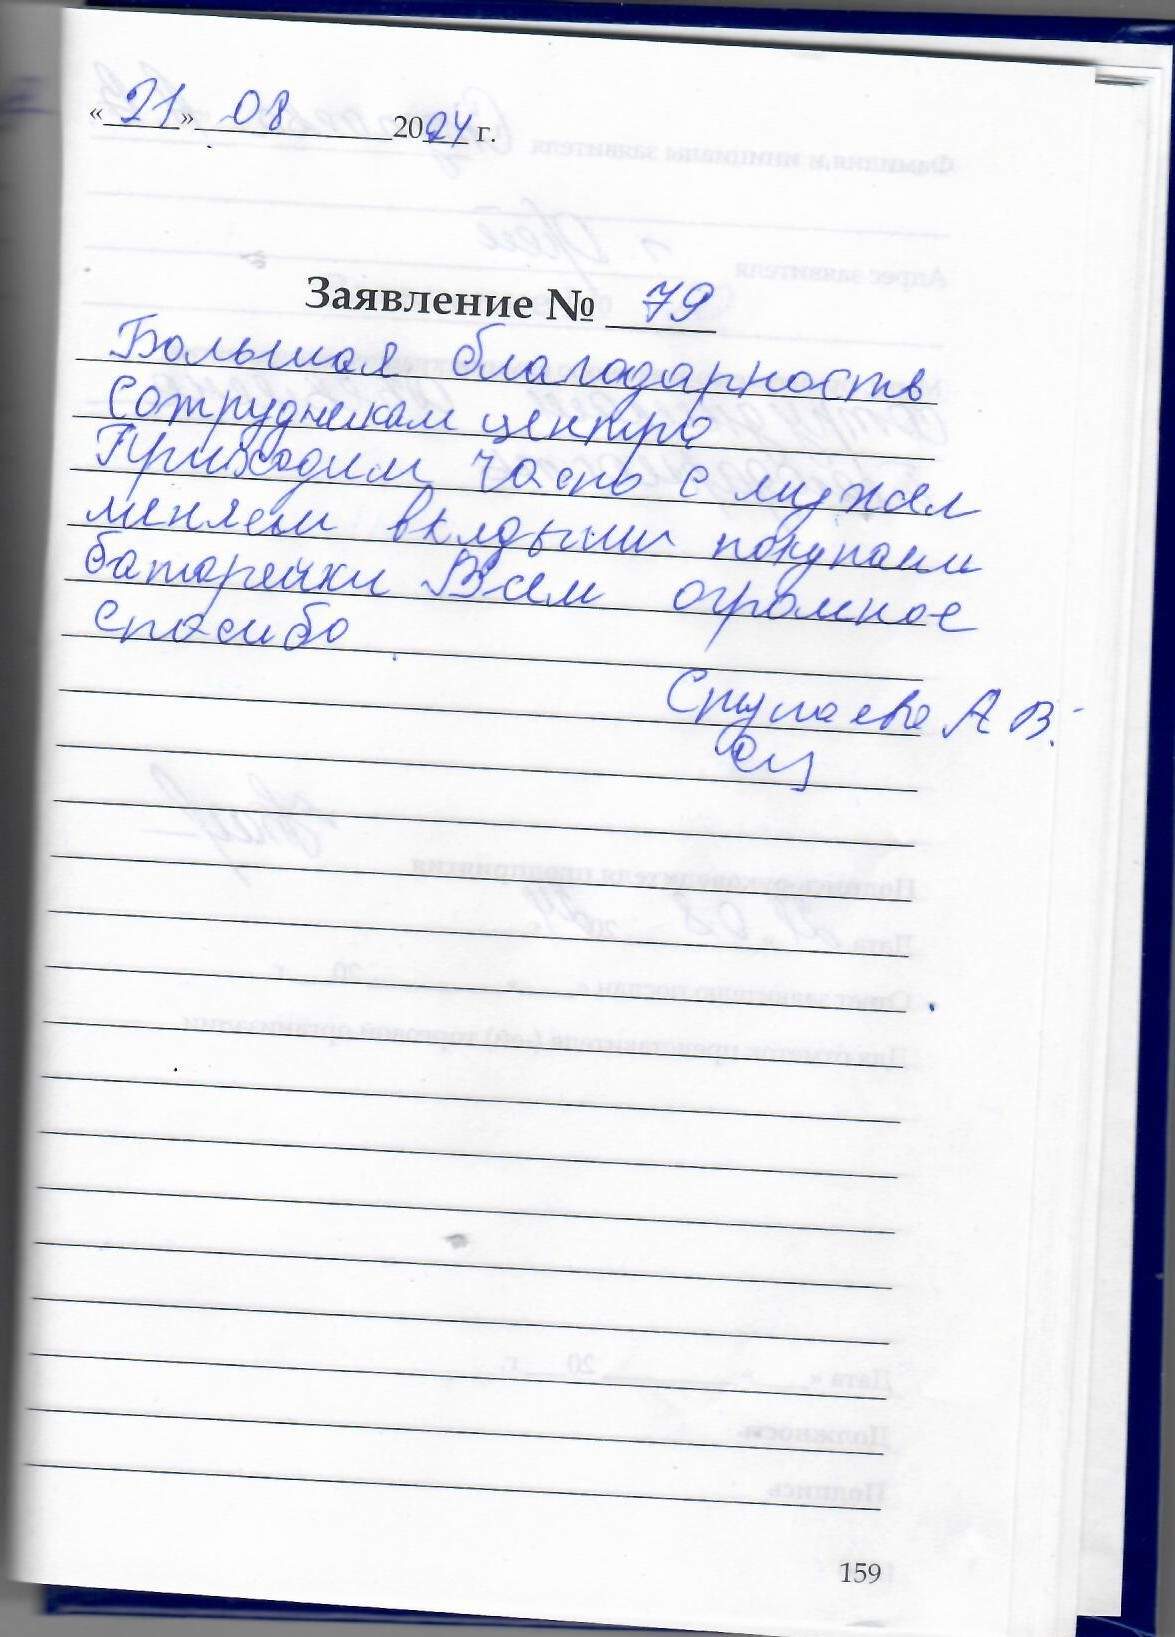 «21» 08 2024 г.
Заявление № 79
Большая благодарность
сотрудникам центра
Приходим часто с мужем
меняем вкладыши покупаем
батарейки Всем огромное
спасибо
А В.
159